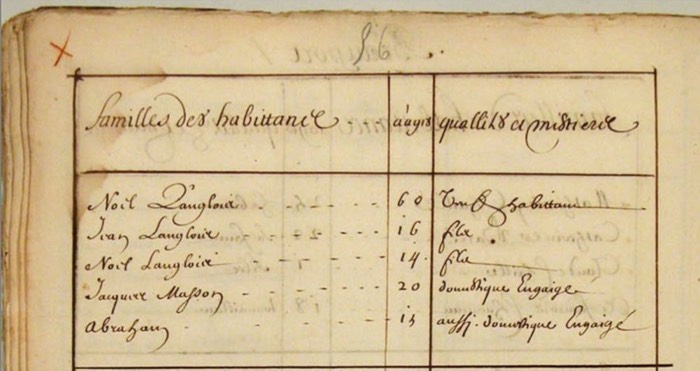 56
familles des habittants aages quallités et mestiers
Noël Langlois 60 habittant
Jean Langlois 16 filz
Noël Langlois 14 filz
Jacques Masson 20 domestique Engaigé
Abraham 15 aussj domestique Engaigé